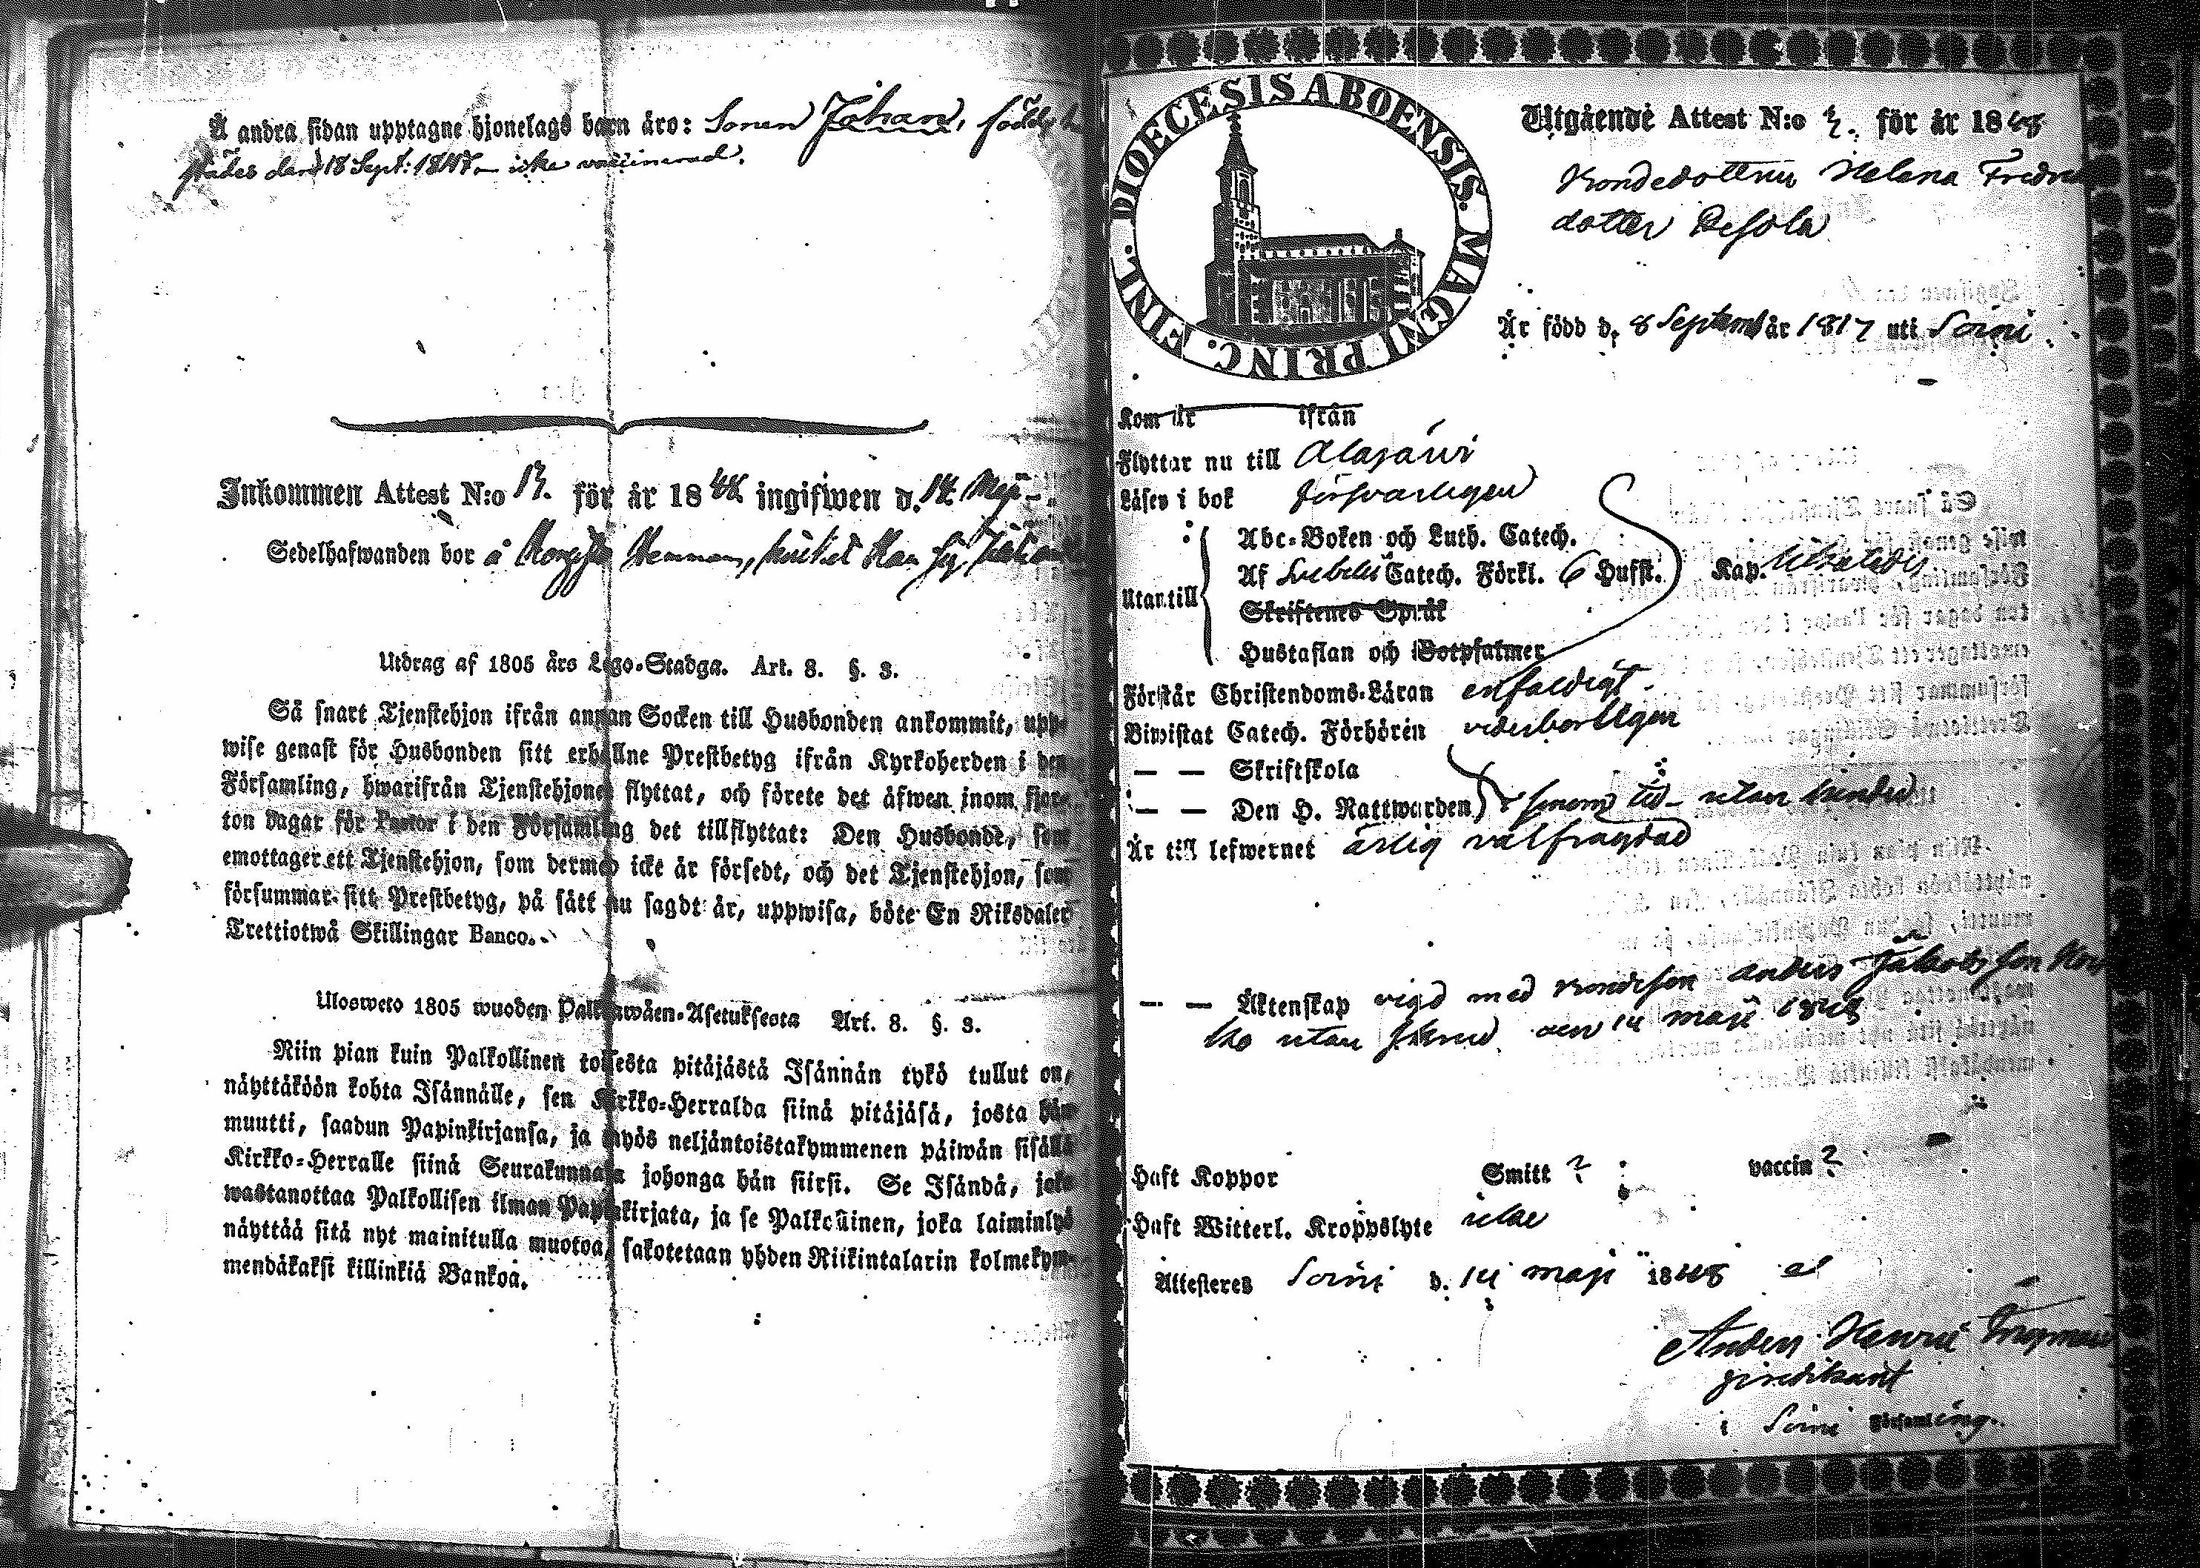 Å andra sidan upptagne hjonelags barn äro: Sonen Johan, född
städes den 18 Sept: 1847 – icke vaccinerad.
Inkommen Attest N:o 13. för år 18 ingifwen d. 14 Maji
Sedelhafwanden bor å
Utdrag af 1805 års Lego-Stadga. Art. 8. §. 3.
Så snart Tjenstehjon ifrån annan Socken till Husbonden ankommit, upp-
wise genast för Husbonden sitt erhållne Prestbetyg ifrån Kyrkoherden i den
Församling, hwarifrån Tjenstehjonet flyttat, och förete det äfwen inom fjor-
ton dagar för Pastor i den Församling det tillflyttat: Den Husbonde, som
emottager ett Tjenstehjon, som dermed icke är försedt, och det Tjenstehjon, som
försummar sitt Prestbetyg, på sätt nu sagdt är, uppwisa, böte En Riksdaler
Trettiotwå Skillingar Banco.
Ulosweto 1805 wuoden Palkkawäen-Asetuksesta Art. 8. §. 3.
Niin pian kuin Palkollinen toisesta pitäjästä Isännän tykö tullut on,
näyttäköön kohta Isännälle, sen Kirkko-Herralda siinä pitäjäsä, josta hän
muutti, saadun Papinkirjansa, ja myös neljäntoistakymmenen päiwän sisällä
Kirkko-Herralle siinä Seurakunnasa johonga hän siirsi. Se Isändä, joka
wastanottaa Palkollisen ilman Papinkirjata, ja se Palkollinen, joka laiminlyö
näyttää sitä nyt mainitulla muotoa, sakotetaan yhden Riikintalarin kolmekym-
mendäkaksi killinkiä Bankoa.
DIOECESIS ABOENSIS. MAGNI PRINC. FINL.
Utgående Attest N:o för år 1848
Bondedottren Helena Fredr
dotter
Är född d. 8 Septemb år 1817 uti Soini
Kom år ifrån
Flyttar nu till Alajärvi
Läser i bok försvarligen
Utantill
Abc-Boken och Luth. Catech.
Af Svebelii Catech. Förkl. 6 Hufst. Kap.
Skriftenes Språk
Hustaflan och Botpsalmer
Förstår Christendoms-Läran enfaldigt.
Biwistat Catech. Förhören vederborligen
— — Skriftskola
— — Den H. Nattwarden utan hinder
Är till lefwernet ärlig välfrägdad
— — Äktenskap vigd med Bondeson Anders Jakobsson
utan den 14 Maji 1848
Haft Koppor Smitt ? vaccin ?
Haft Witterl. Kroppslyte icke
Attesteres Soini d. 14 Maji 1848 af
Anders Henric
predikant
i Soini Församling.